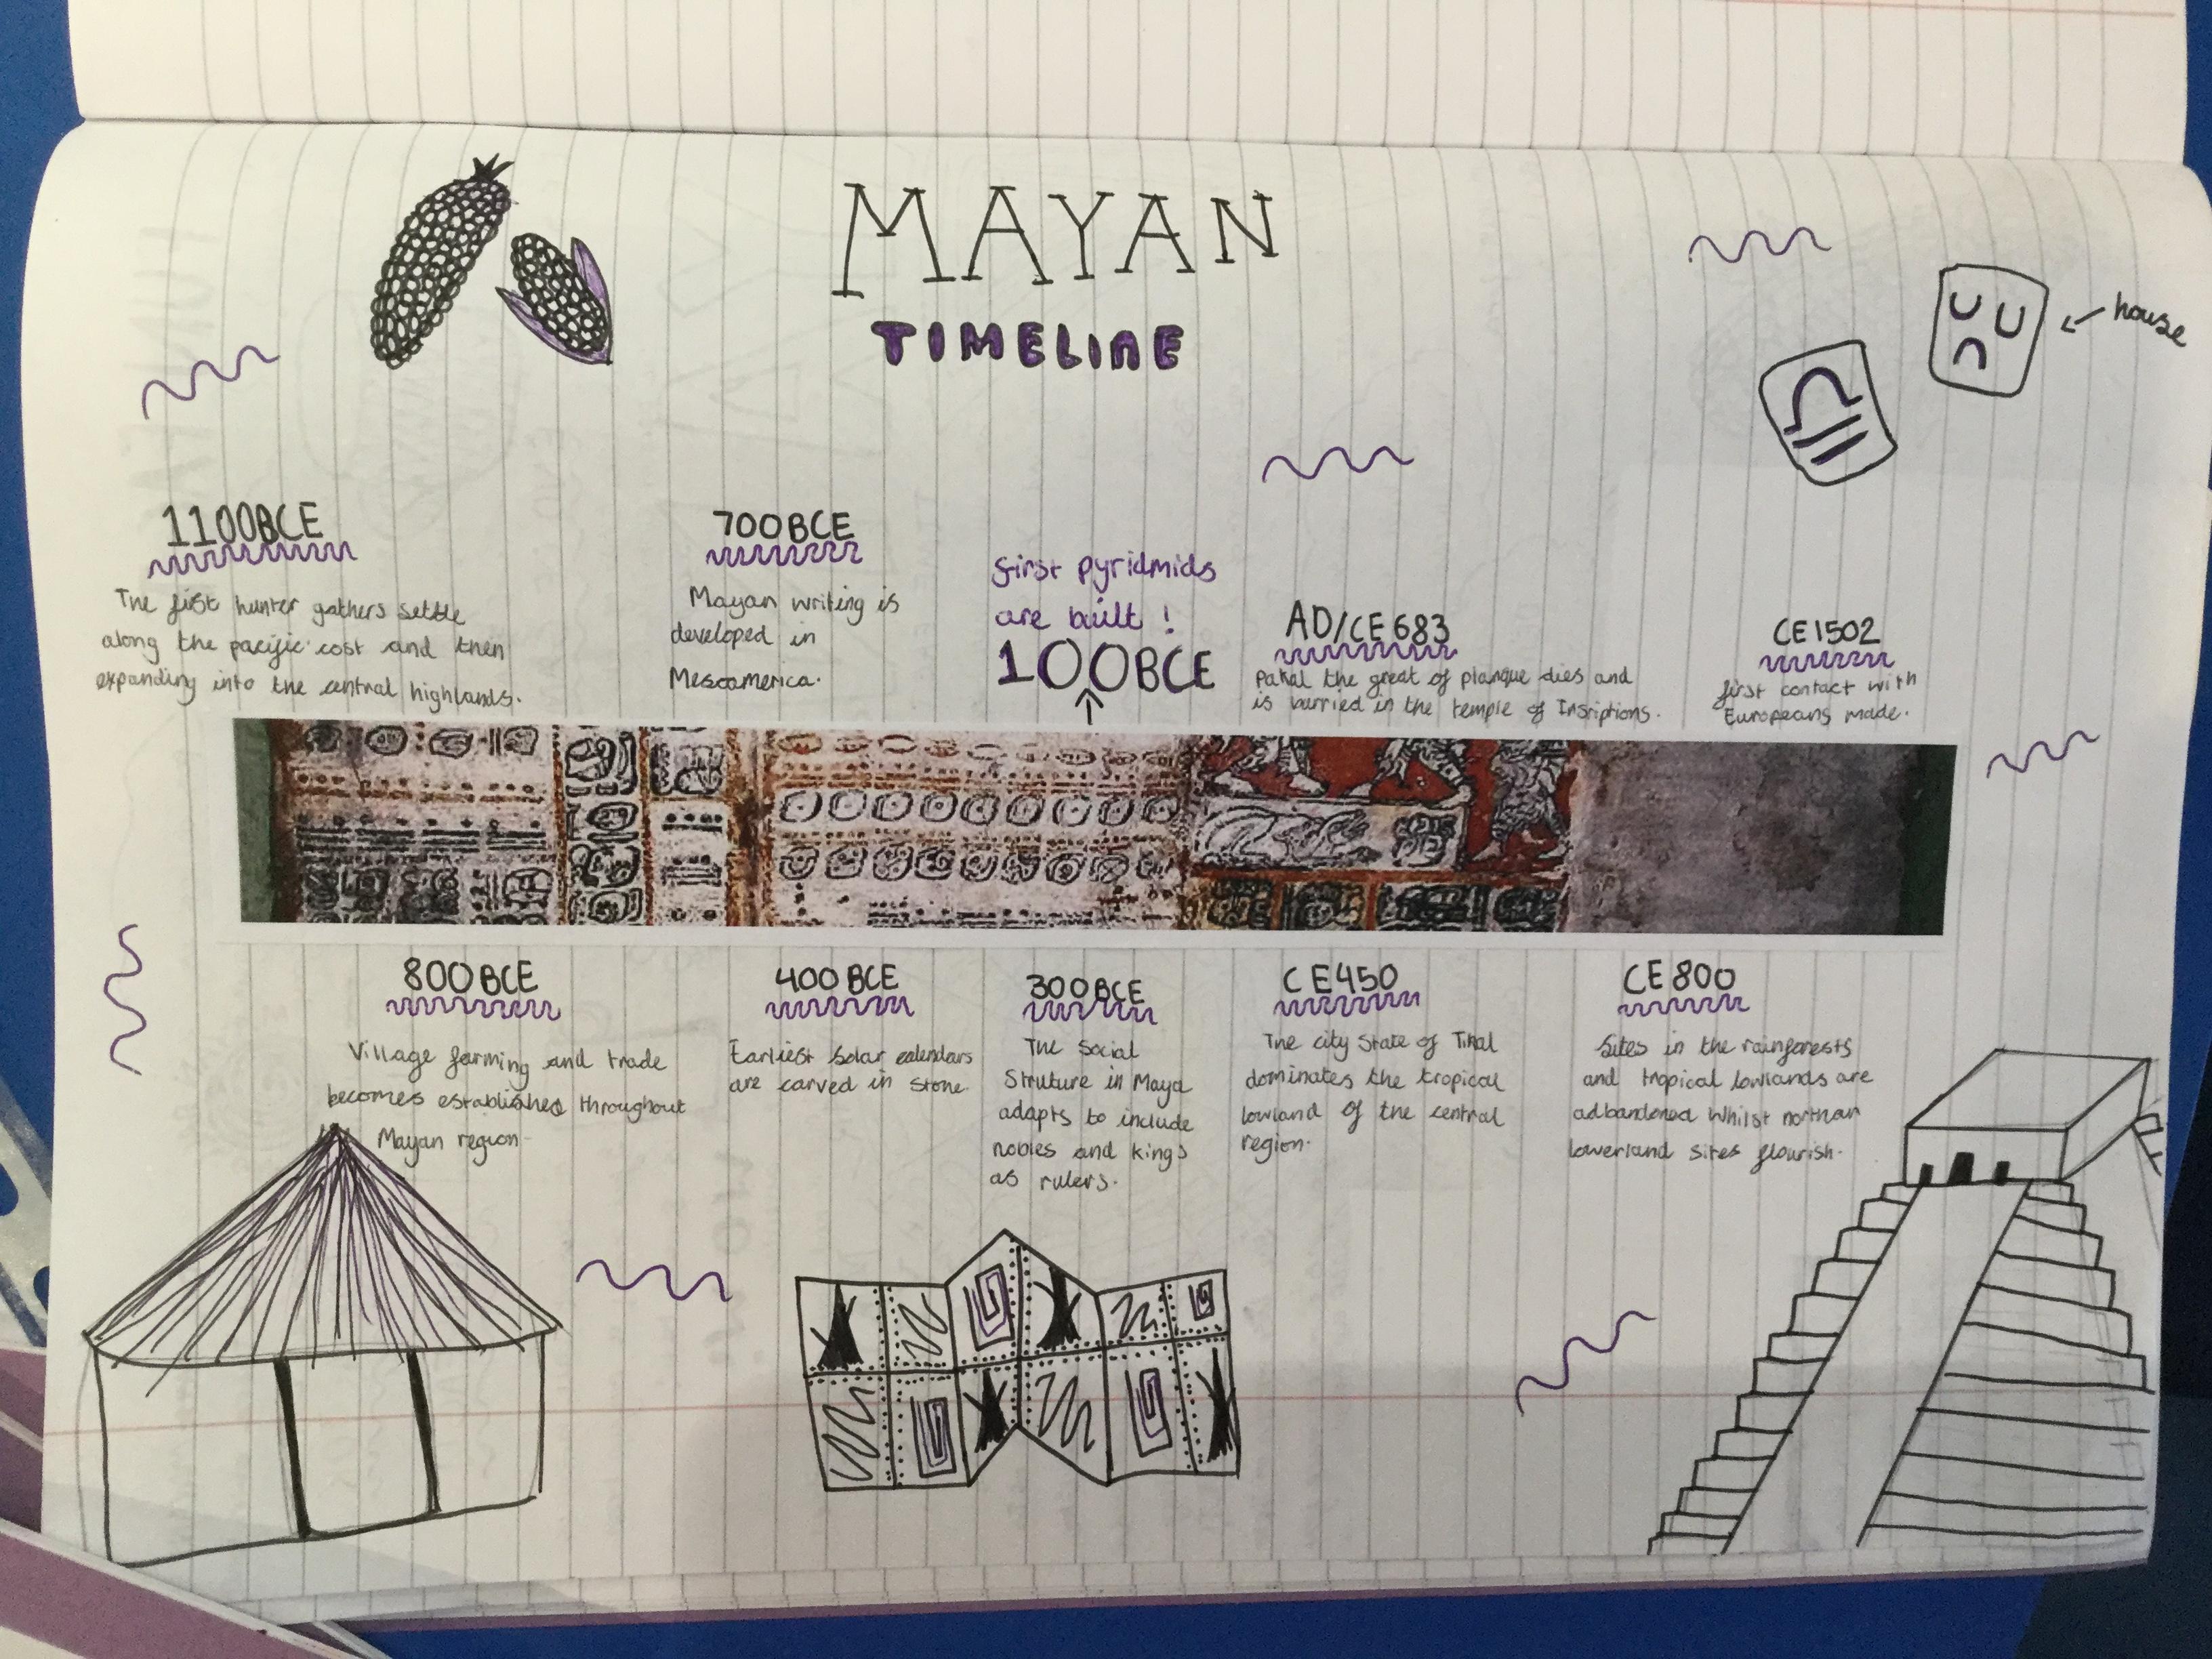 MAYAN
TIMELINE
house
1100BCE
The first hunter gathers settle
along the pacific cost and then
expanding into the central highlands.
700BCE
Mayan writing is
developed in
Mesoamerica.
first pyridmids
are built !
100BCE
AD/CE 683
Pakal the great of planque dies and
is burried in the temple of Insriptions.
CE1502
first contact with
Europeans made.
800BCE
Village farming and trade
becomes established throughout
Mayan region
400BCE
Earliest Solar calendars
are carved in stone
300BCE
The Social
Struture in Maya
adapts to include
nobles and kings
as rulers.
CE450
The city State of Tikal
dominates the tropical
lowland of the central
region.
CE800
Sites in the rainforests
and tropical lowlands are
adbandoned whilst northan
lowerland sites flourish.